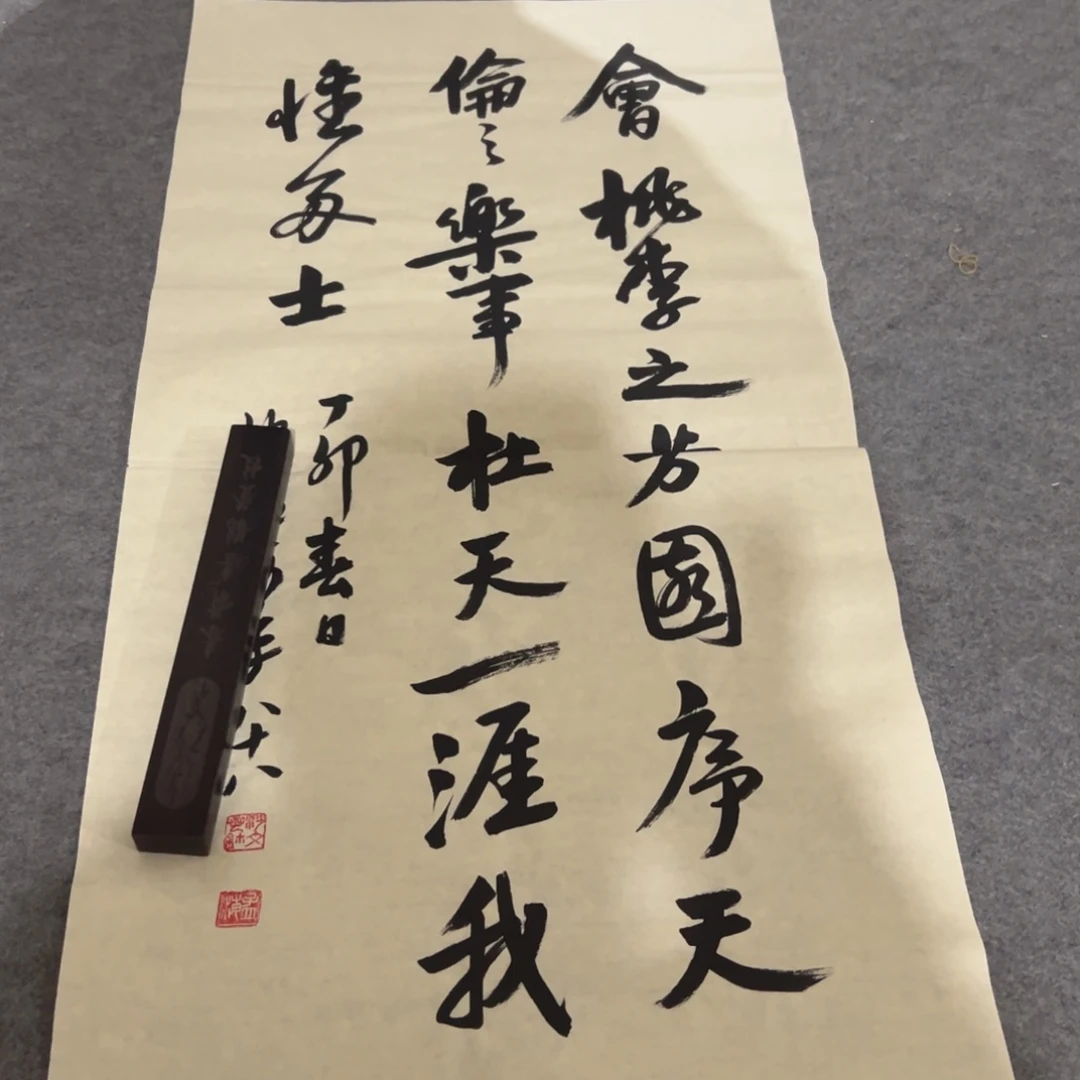 會桃李之芳園序天
倫之樂事杜天一涯我
士
丁卯春日
八十八
孟海